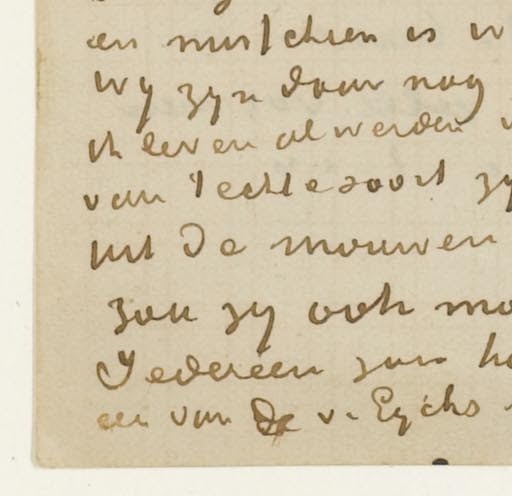 en misschien is
Wy zyn daar nog
't leven al werden
van 't echte soort zy
uit de mouwen
zou zy ook
Iedereen zou
en van de v. Eycks